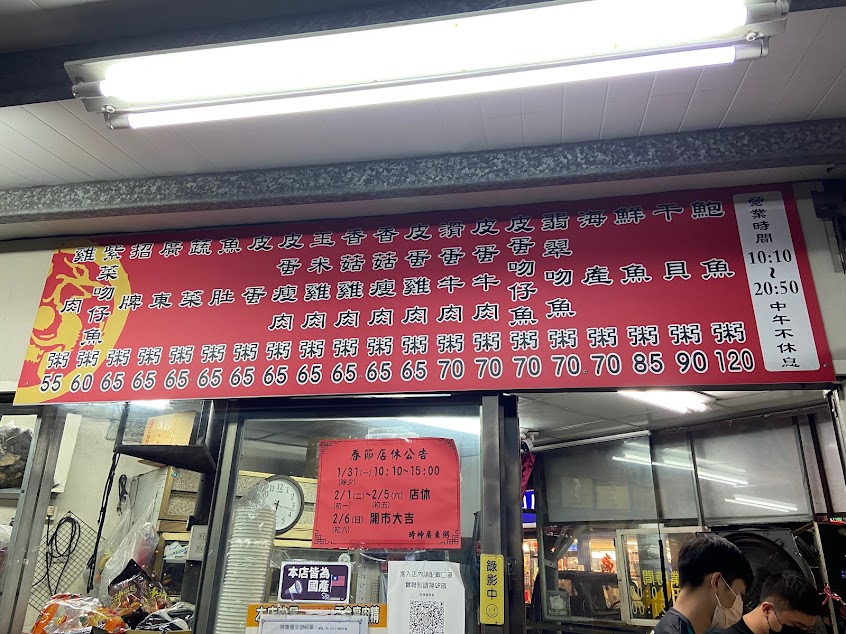 雞肉粥 55
紫菜吻仔魚粥 60
招牌粥 65
廣東粥 65
蔬菜粥 65
魚肚粥 65
皮蛋粥 65
皮蛋瘦肉粥 65
玉米雞肉粥 65
香菇雞肉粥 65
香菇瘦肉粥 65
皮蛋雞肉粥 65
滑蛋牛肉粥 70
皮蛋牛肉粥 70
皮蛋吻仔魚粥 70
翡翠吻魚粥 70
海產粥 70
鮮魚粥 85
干貝粥 90
鮑魚粥 120
營業時間
10:10
~
20:50
中午不休息
春節店休公告
1/31(一)10:10~15:00
(除夕)
2/1(二)~2/5(六) 店休
(初一) (初五)
2/6(日) 開市大吉
(初六)
時神廣東粥
本店皆為
國產
進入店內請配戴口罩
實聯制請掃描
錄影中